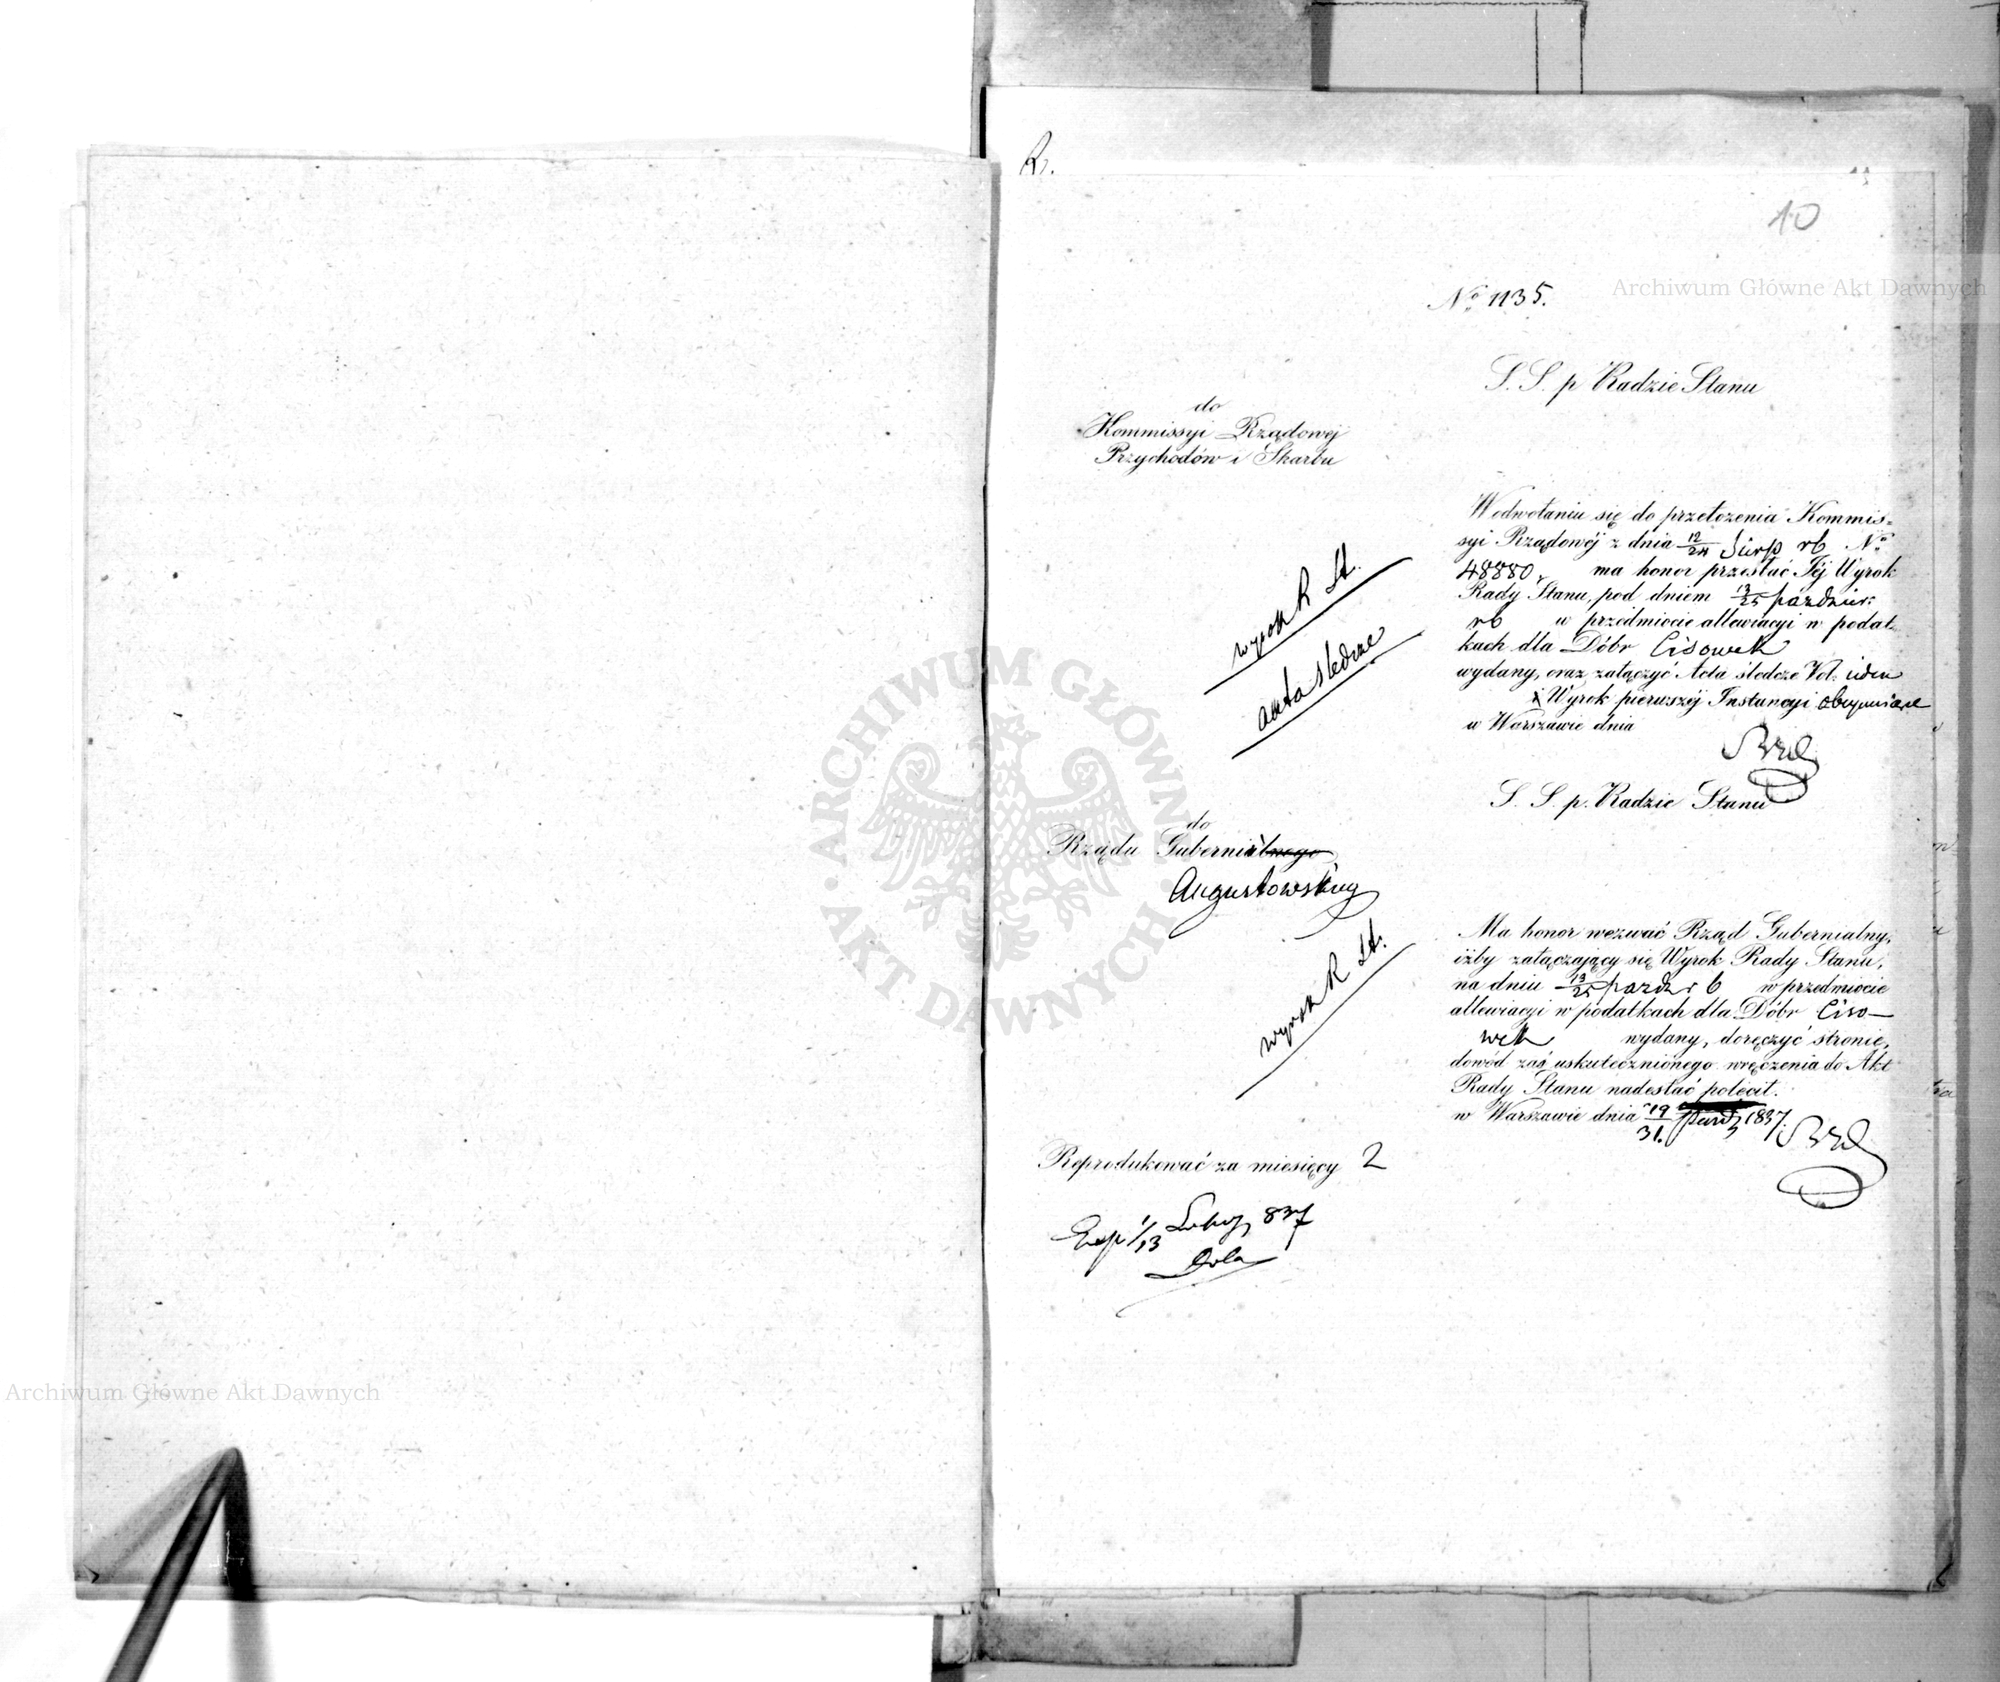 Rz.
10
Archiwum Główne Akt Dawnych
No 1135.
S. S. p Radzie Stanu
do
Kommissyi Rządowej
Przychodów i Skarbu
W odwołaniu się do przełożenia Kommis=
syi Rządowéj z dnia 12/24 Sierp rb No
48880, ma honor przesłać Jéj Wyrok
Rady Stanu, pod dniem 13/25 paździer:
rb w przedmiocie allewiacyi w podat=
kach dla Dóbr Cisowek
wydany, oraz załączyć Acta śledcze Vol:
i Wyrok pierwszéj Instancyi
w Warszawie dnia
wyrok R St.
akta śledcze
S. S. p. Radzie Stanu
do
Rządu Gubernialnego
Augustowskiey
Ma honor wezwać Rząd Gubernialny,
iżby załączający się Wyrok Rady Stanu,
na dniu 13/25 paźdz r b w przedmiocie
allewiacyi w podatkach dla Dóbr Ciso—
wek wydany, doręczyć stronie,
dowód zaś uskutecznionego wręczenia do Akt
Rady Stanu nadesłać polecił.
w Warszawie dnia 19/31. Paźdz 1837.
wyrok R St.
Reprodukować za miesięcy 2
Exp 1/13 837
ARCHIWUM GŁÓWNE AKT DAWNYCH
Archiwum Główne Akt Dawnych